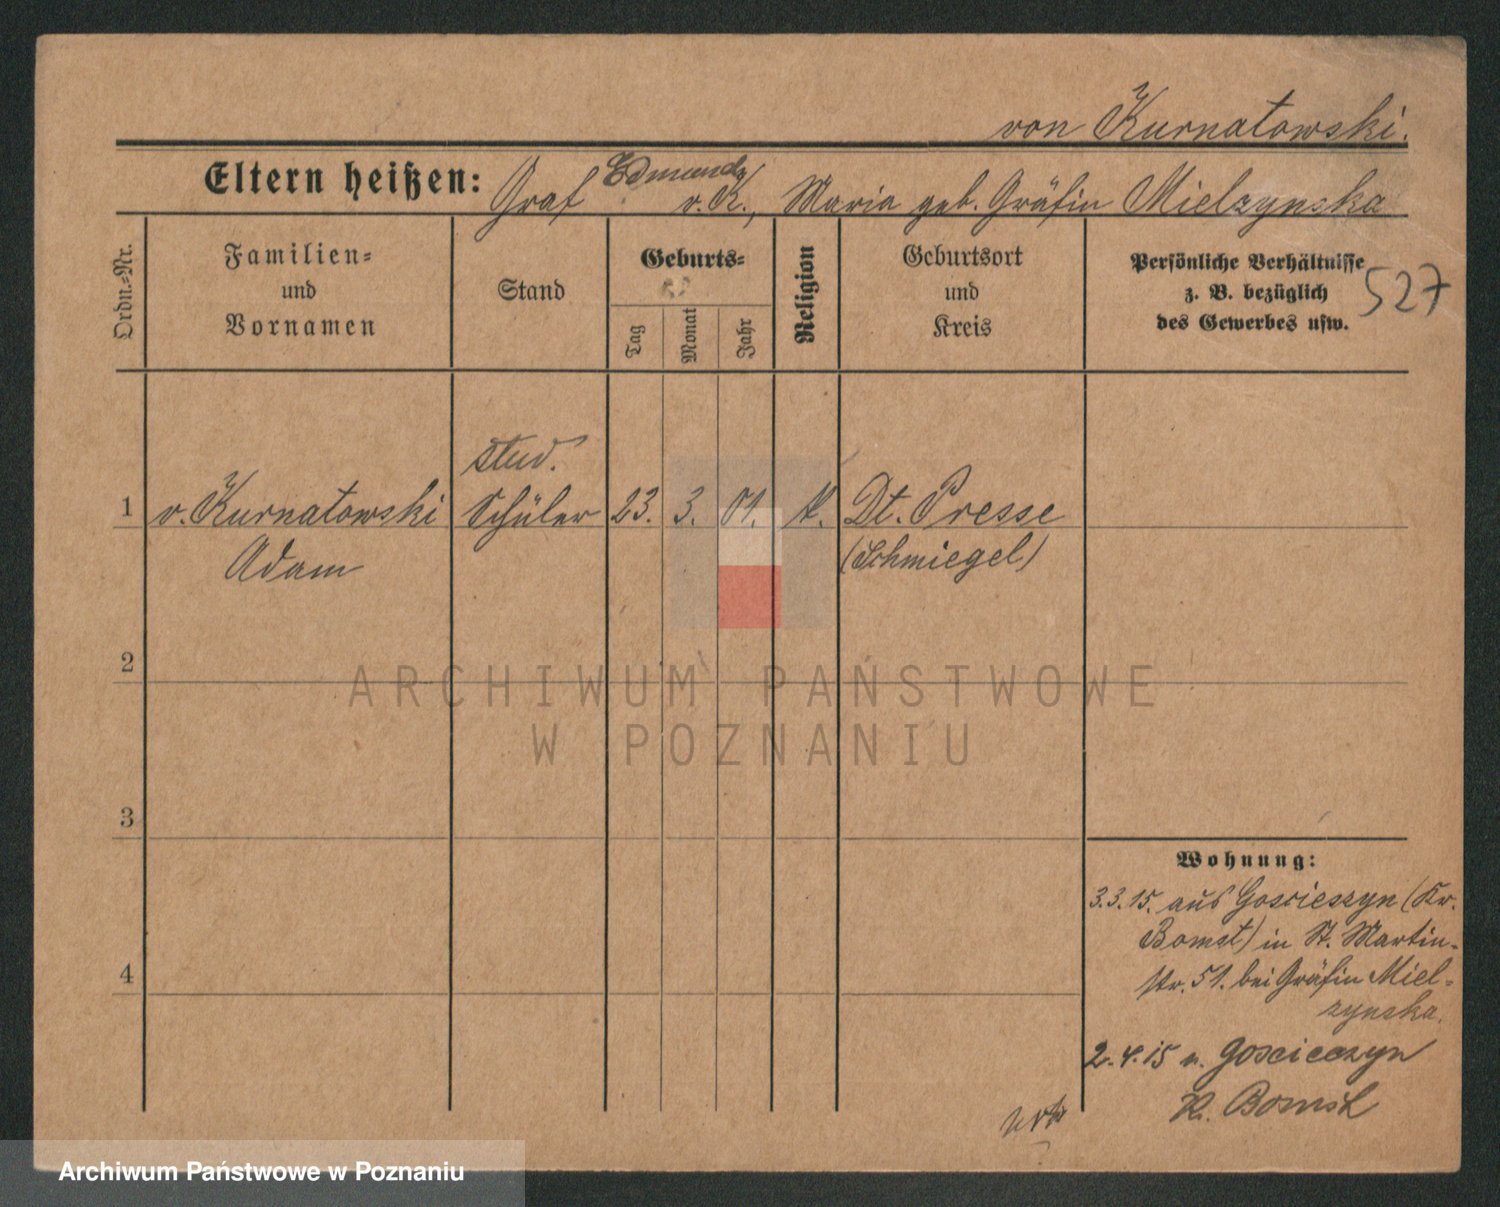 von Kurnatowski.
Eltern heißen: Graf Edmund v. K., Maria geb. Gräfin Mielzynska
Ordn.-Nr.
Familien-
und
Vornamen
Stand
Geburts-
Tag
Monat
Jahr
Religion
Geburtsort
und
Kreis
Persönliche Verhältnisse
z. B. bezüglich
des Gewerbes usw.
527
stud.
1 v. Kurnatowski Schüler 23. 3. 01. k. Dt. Presse
Adam (Schmiegel)
2
3
4
Wohnung:
3.3.15. aus Goscieszyn (Kr.
Bomst) in St. Martin-
str. 51. bei Gräfin Miel-
zynska.
2.4.15 n. Goscieczyn
K. Bomst
ARCHIWUM PAŃSTWOWE
W POZNANIU
Archiwum Państwowe w Poznaniu